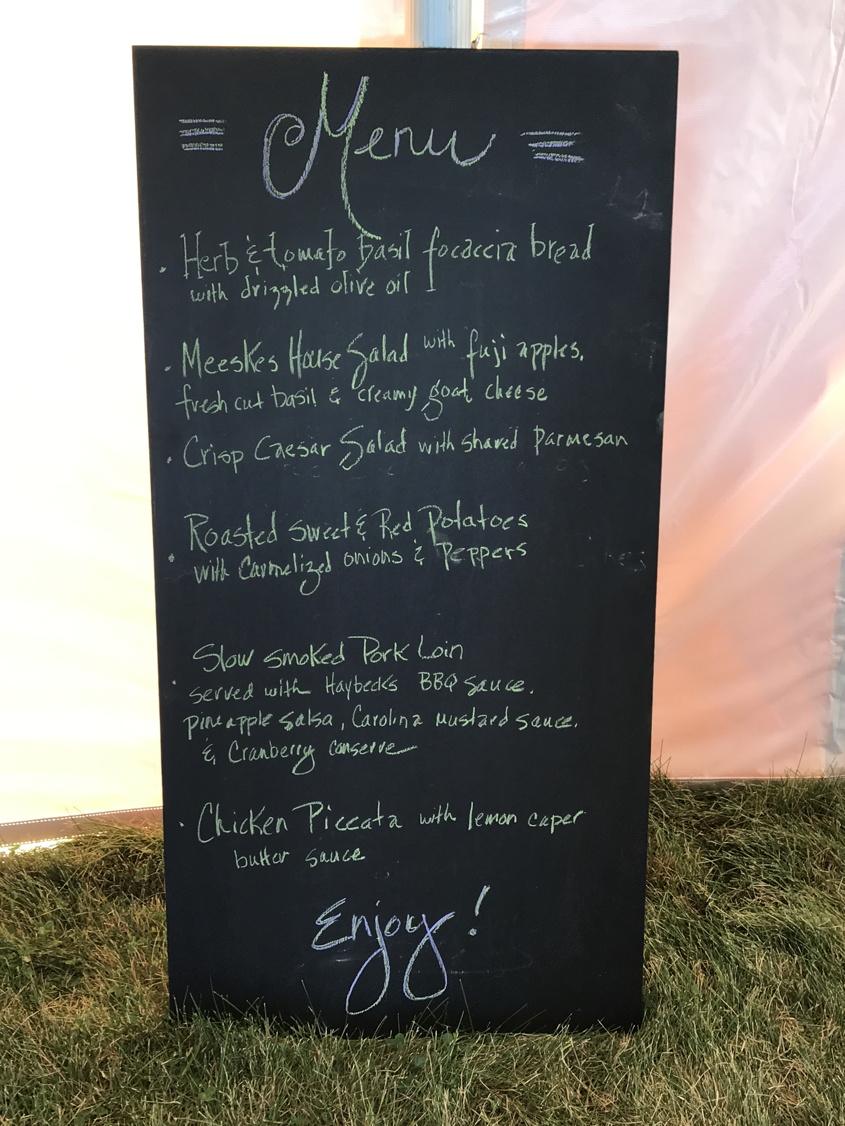 Menu
Herb & tomato basil focaccia bread
with drizzled olive oil
Meeskes House Salad with fuji apples,
fresh cut basil & creamy goat cheese
Crisp Caesar Salad with shaved Parmesan
Roasted sweet & Red Potatoes
with Carmelized onions & Peppers
Slow smoked Pork Loin
served with Haybeck's BBQ sauce,
pineapple salsa, Carolina mustard sauce,
& Cranberry conserve
Chicken Piccata with lemon caper
butter sauce
Enjoy!